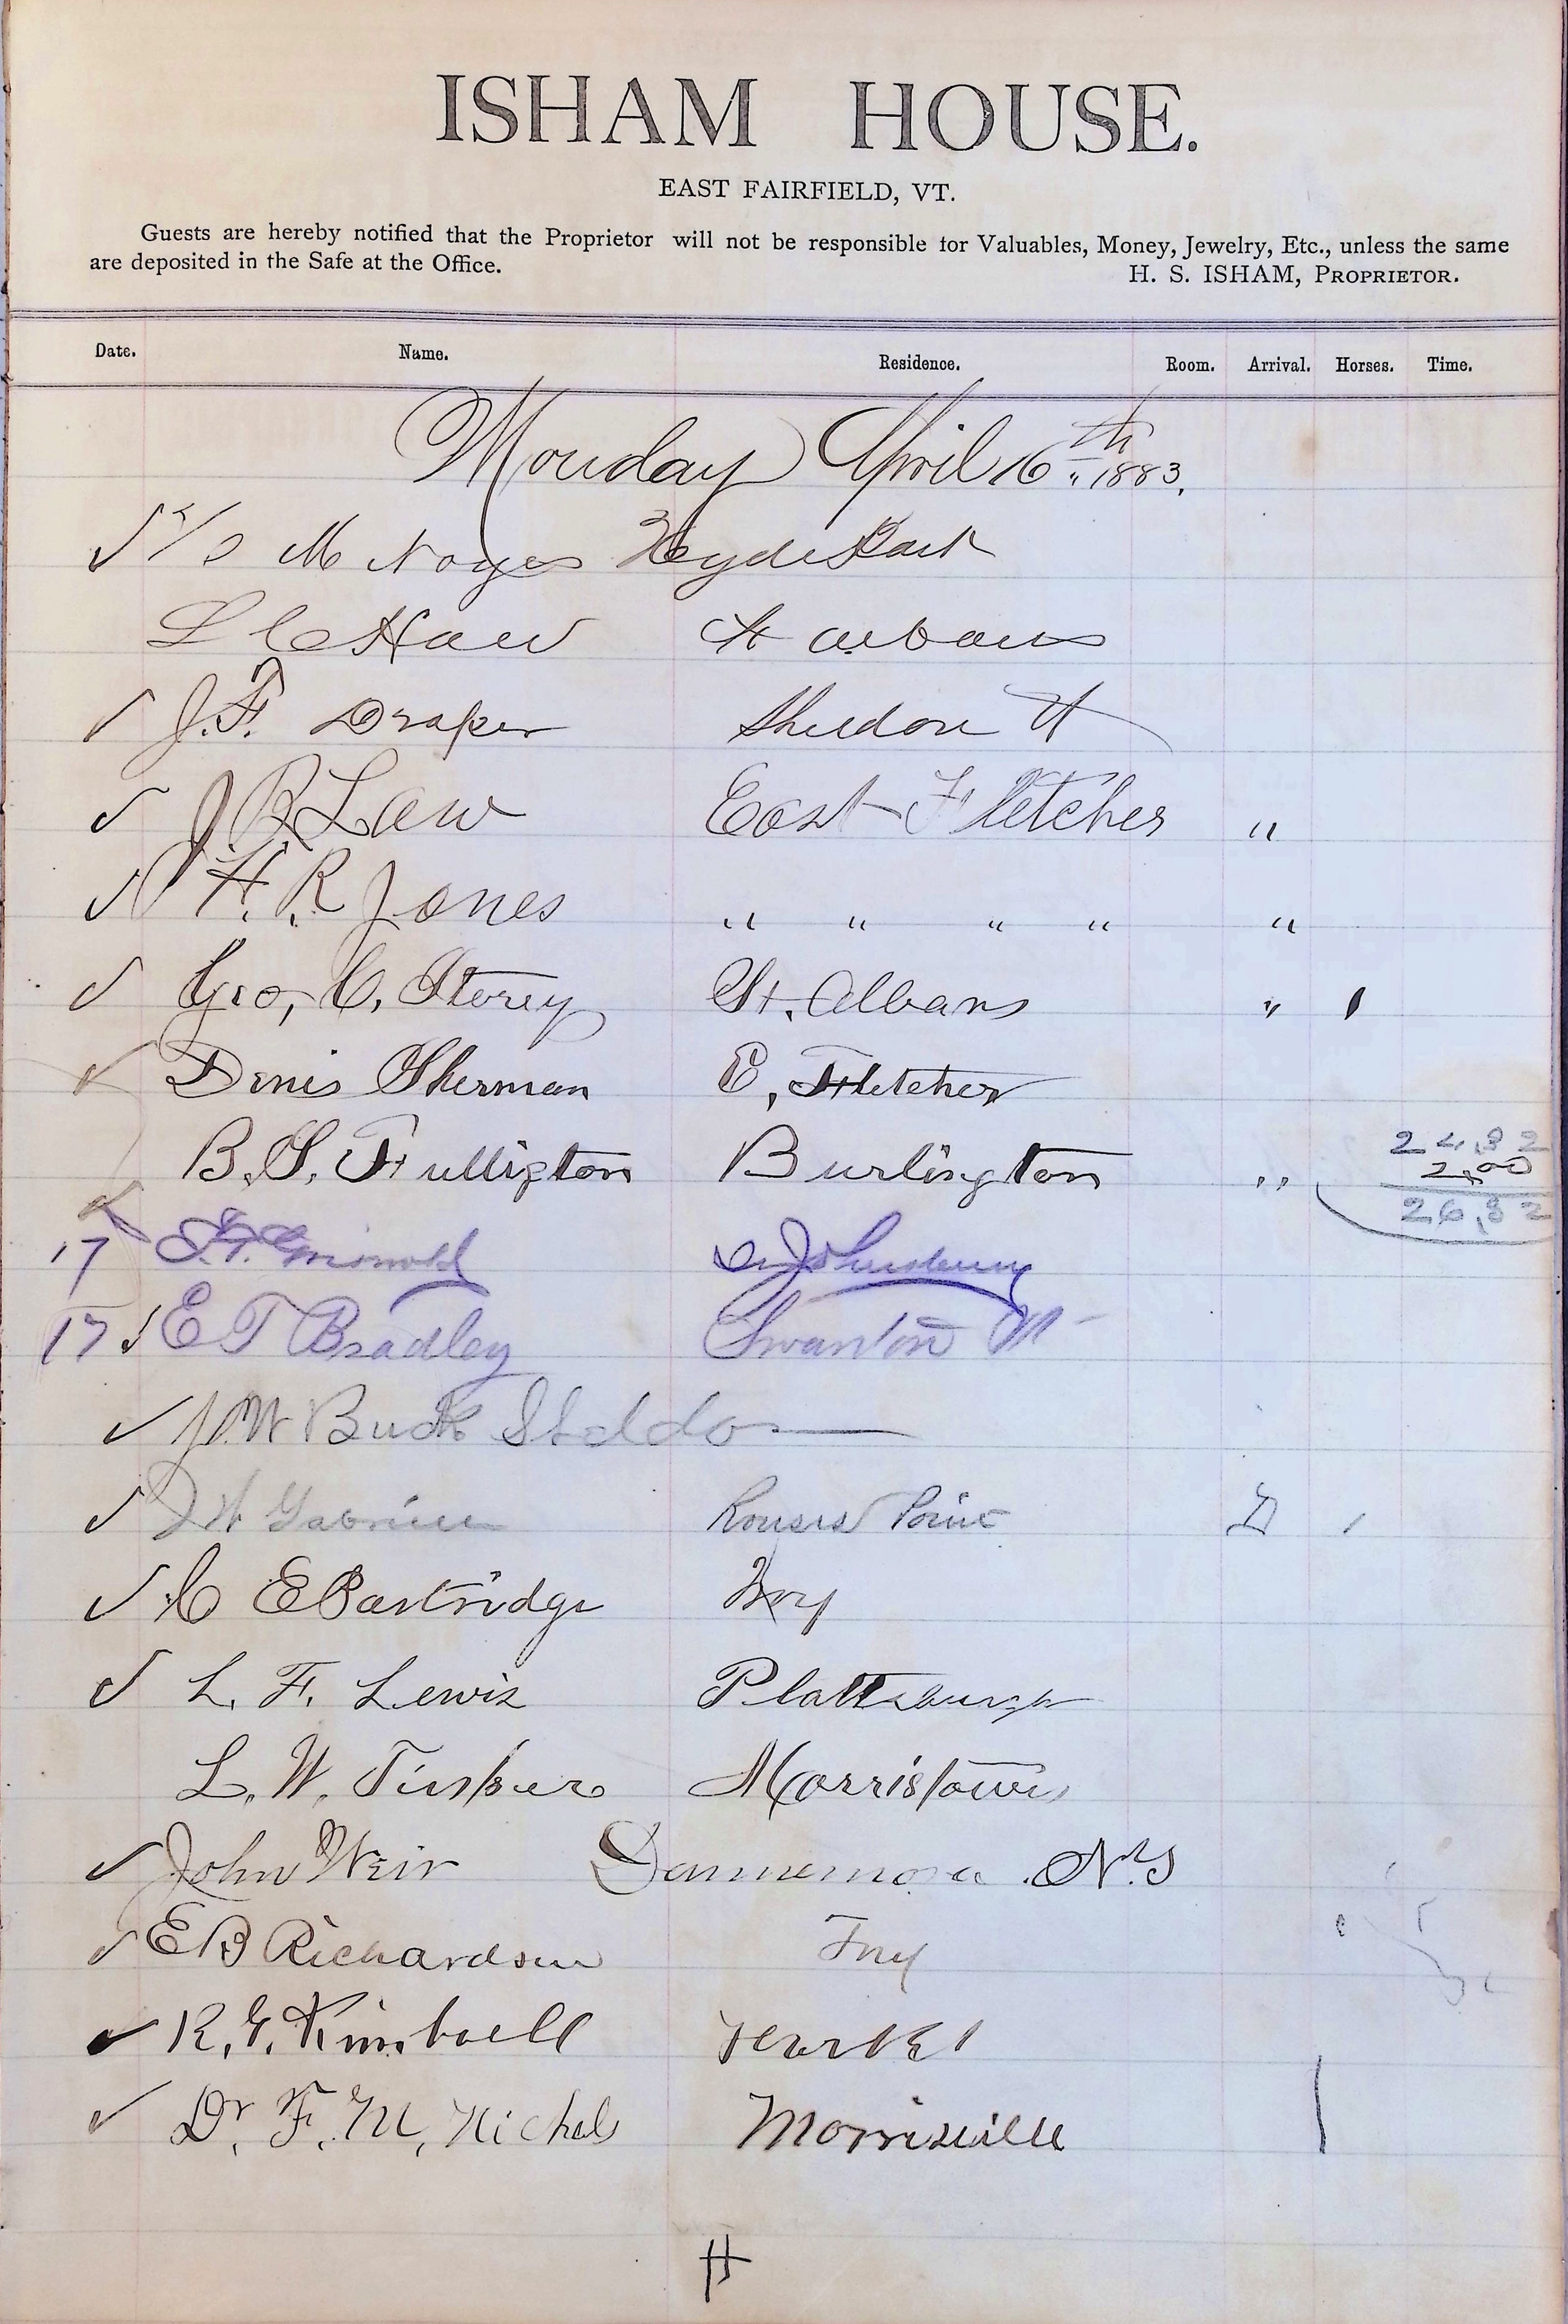 ISHAM HOUSE.
EAST FAIRFIELD, VT.
Guests are hereby notified that the Proprietor will not be responsible for Valuables, Money, Jewelry, Etc., unless the same
are deposited in the Safe at the Office.
H. S. ISHAM, PROPRIETOR.
Date. Name. Residence. Room. Arrival. Horses. Time.
Monday April 16th " 1883.
M Noyes Hyde Park
St Albans
✓ J.F. Draper Sheldon Vt
✓ J B Law East Fletcher "
✓ H. R Jones " " " " "
✓ Geo, C, Storey St. Albans "
✓ Denis Sherman E, Fletcher
B. S. Fullington Burlington "
24,82
2,00
26,82
17 Griswold St Johnsbury
17 ✓ E T Bradley Swanton Vt
✓ J. W Buck Sheldon
✓ J W Gabriell Rouses Point D
✓ C E Partridge Troy
✓ L. F. Lewis Plattsburgh
L. W. Morristown
✓ John Weir Dannemora N.Y
✓ E B Richardson Troy
✓ R. G. Kimball
✓ Dr. F. M. Nichols Morrisville
H